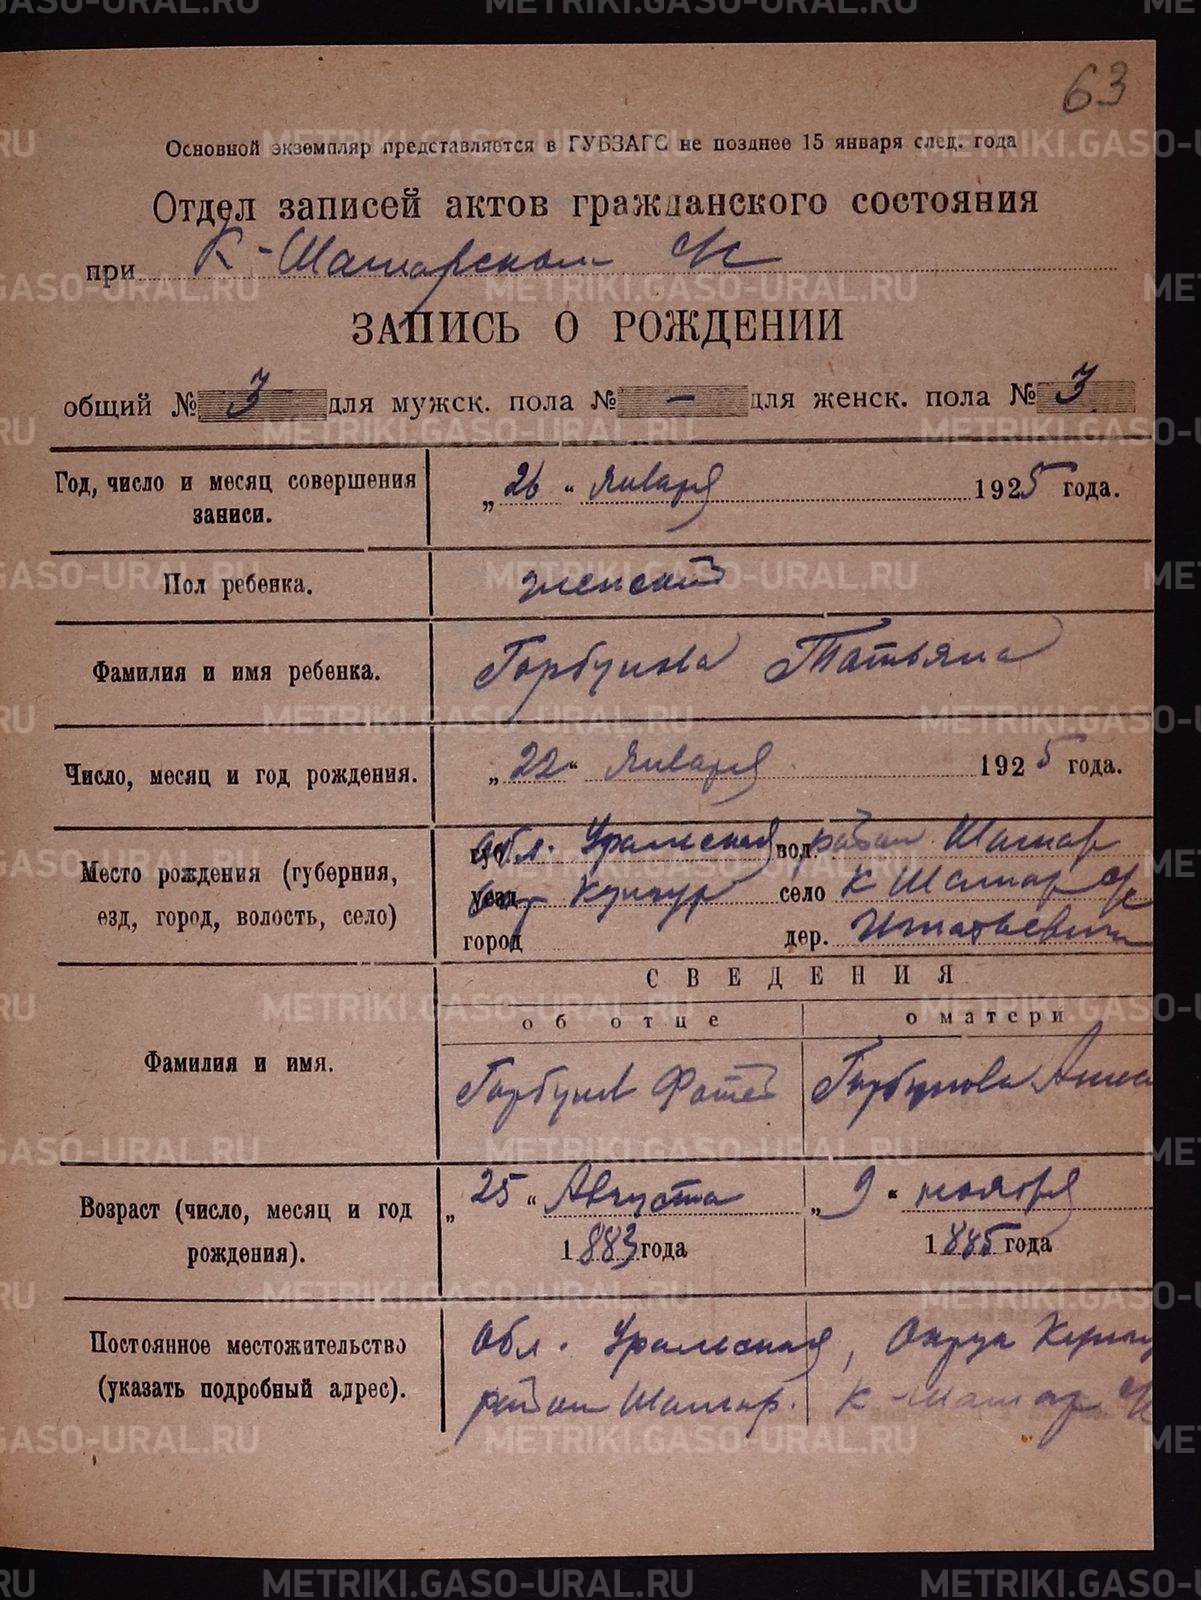 63
Основной экземпляр представляется в ГУБЗАГС не позднее 15 января след. года
Отдел записей актов гражданского состояния
при К-Шамарском с/с
ЗАПИСЬ О РОЖДЕНИИ
общий № 3 для мужск. пола № - для женск. пола № 3
Год, число и месяц совершения записи. „ 26 " января 1925 года.
Пол ребенка. женский
Фамилия и имя ребенка. Горбунова Татьяна
Число, месяц и год рождения. „ 22 " января 1925 года.
Место рождения (губерния, Обл. Уральская вол. район Шамар
езд, город, волость, село) Окр Кунгур село К Шамар с/с
город дер.
СВЕДЕНИЯ
об отце о матери
Фамилия и имя. Горбунов Фотей Горбунова Анна
Возраст (число, месяц и год рождения). „ 25 " Августа 1883 года „ 9 " ноября 1885 года
Постоянное местожительство Обл. Уральская, Округа Кунгу
(указать подробный адрес). район Шамар. К-Шамар с/с
METRIKI.GASO-URAL.RU